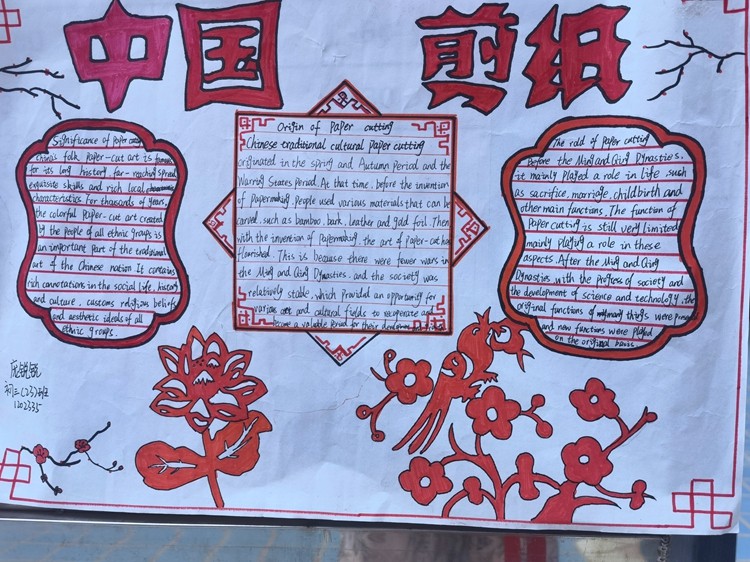 中国 剪纸
Significance of Paper cutting
china's folk paper-cut art is famous
for its long history, far-reaching spread
exquisite skills and rich local
characteristics For thousands of years,
the colorful Paper-cut art created
by the people of all ethnic groups is
an important part of the traditional
art of the Chinese nation It contains
rich connotations in the social life, history
and culture, customs religious beliefs
and aesthetic ideals of all
ethnic groups.
Origin of Paper cutting
Chinese traditional cultural paper cutting
originated in the spring and Autumn Period and the
Warring States Period. At that time, before the invention
of Papermaking, People used various materials that can be
carved, such as bamboo, bark, leather and gold foil. Then
with the invention of Papermaking, the art of Paper-cut has
flourished. This is because there were fewer wars in
the Ming and Qing Dynasties, and the society was
relatively stable, which Provided an opportunity for
various and cultural fields to recuperate and
become a valuable Period for their
The rold of paper cutting
Before the Ming and Qing Dynasties,
it mainly played a role in life, such
as sacrifice, marriage, childbirth and
other main functions. The function of
Paper cutting is still very limited
mainly playing a role in these
aspects. After the Ming and Qing
Dynasties, with the progress of society and
the development of science and technology, the
original functions of many things were
and new functions were played
on the original basis.
庞锐锐
初三(23)班
1202335